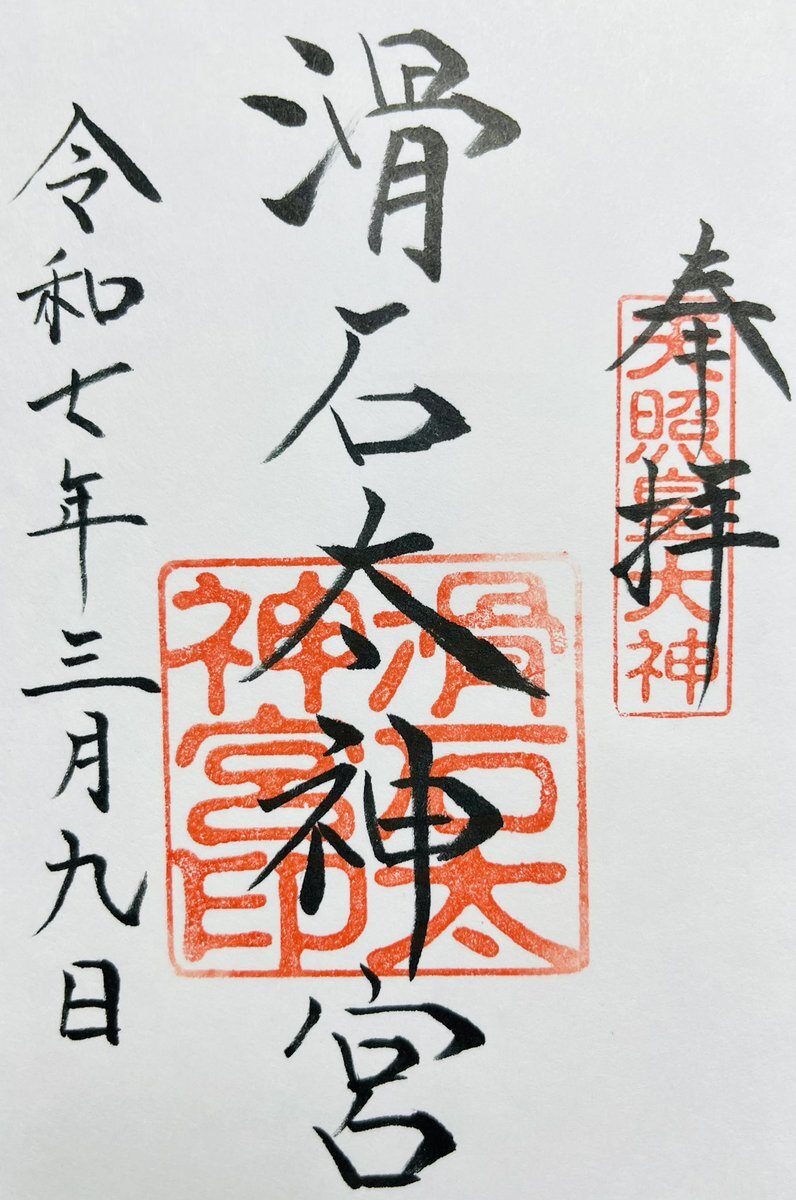 奉拝
天照皇大神
滑石太神宮
滑石太神宮印
令和七年三月九日